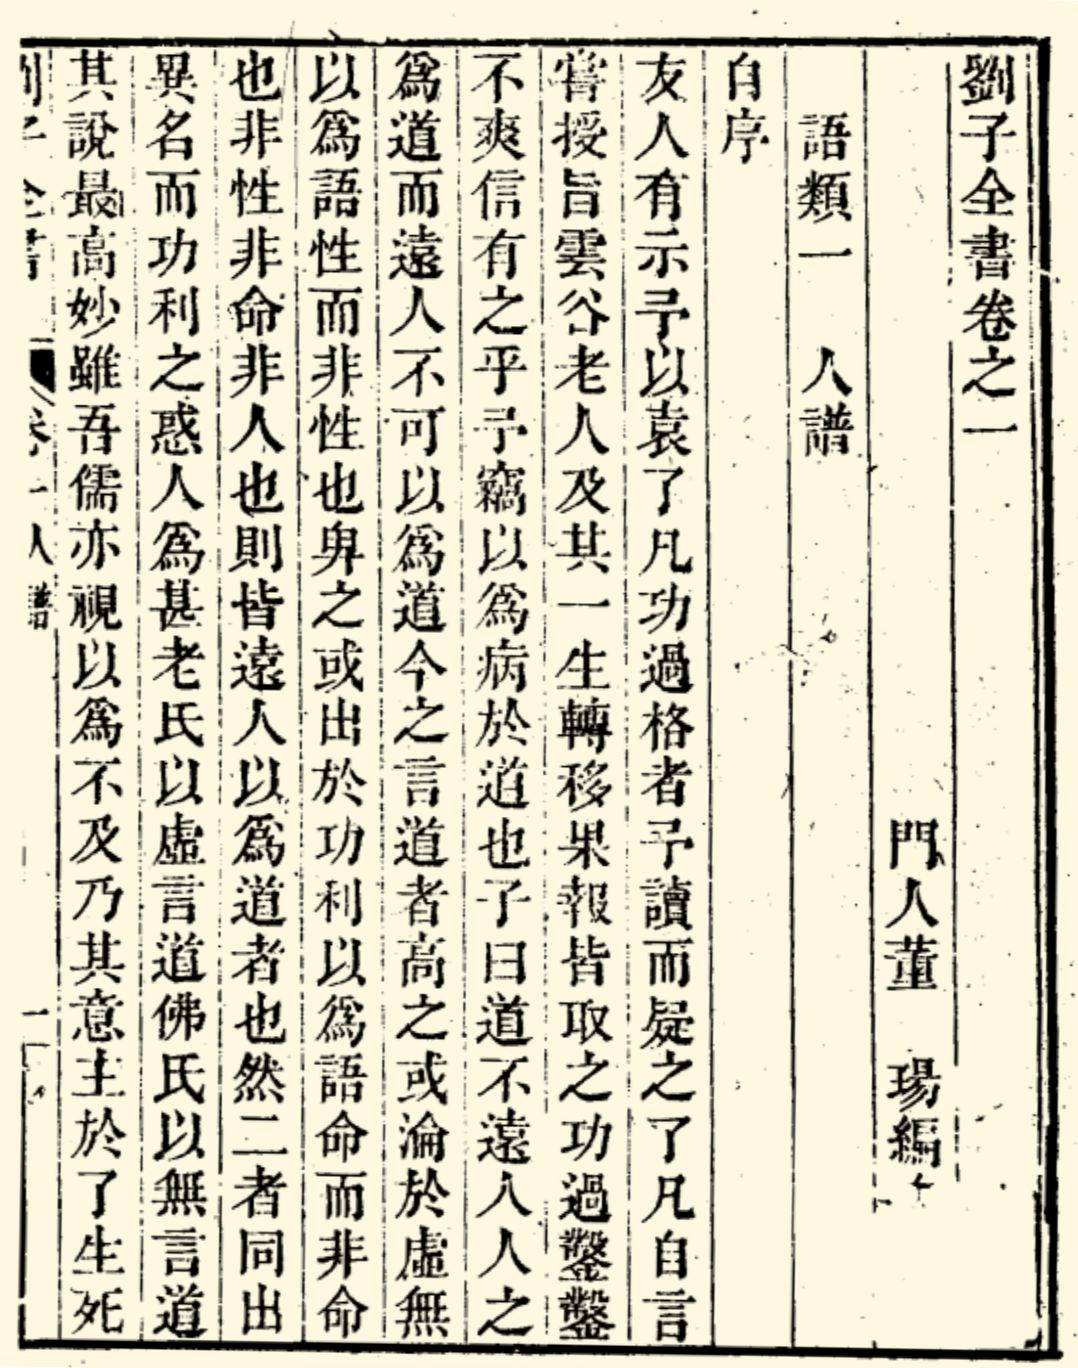 劉子全書卷之一
門人董　瑒編
語類一　人譜
自序
友人有示予以袁了凡功過格者予讀而疑之了凡自言
嘗授旨雲谷老人及其一生轉移果報皆取之功過鑿鑿
不爽信有之乎予竊以爲病於道也子曰道不遠人人之
爲道而遠人不可以爲道今之言道者高之或淪於虛無
以爲語性而非性也卑之或出於功利以爲語命而非命
也非性非命非人也則皆遠人以爲道者也然二者同出
異名而功利之惑人爲甚老氏以虛言道佛氏以無言道
其說最高妙雖吾儒亦視以爲不及乃其意主於了生死
劉子全書　卷一人譜　一